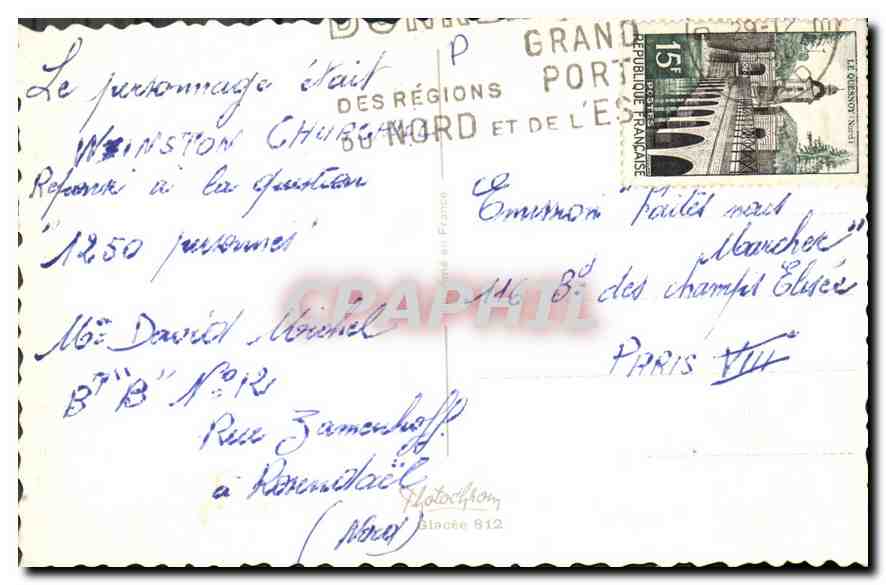 Le personnage était
WINSTON CHURCHILL
Reponse à la question
"1250 personnes"
Mr David Michel
Bt "B" No 12
Rue Zamenhoff
à Rosendaël
(Nord)
P
GRAND
PORT
DES RÉGIONS
DU NORD ET DE L'ES
29-12
15F
POSTES
RÉPUBLIQUE FRANÇAISE
LE QUESNOY (Nord)
Emission "Faites nous
Marcher"
116 Bd des champs Elisée
PARIS VIIIe
en France
CPAPHIL
Photochrom
Glacée 812